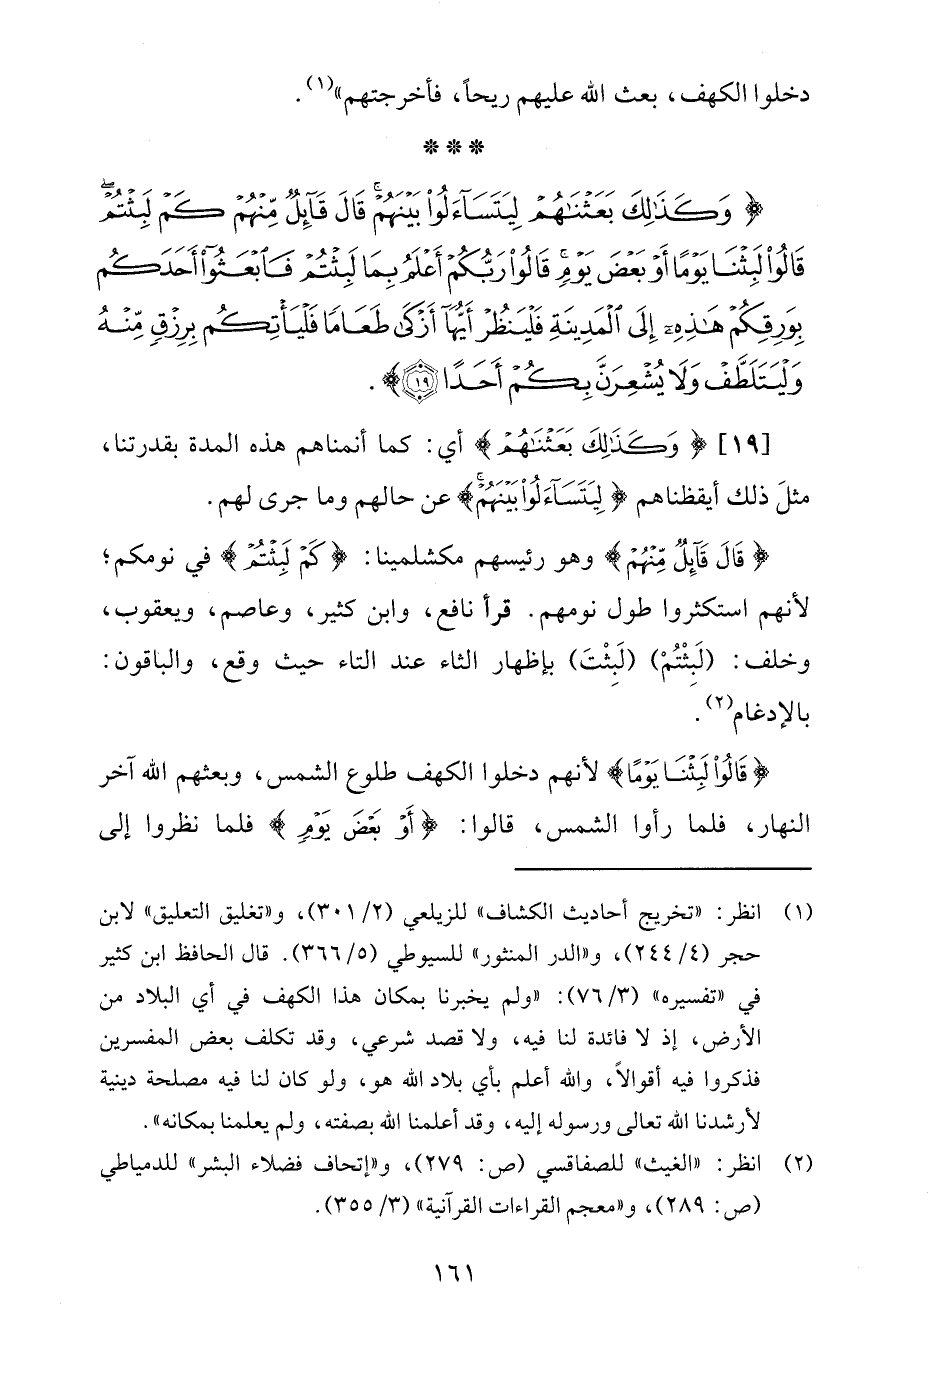 دخلوا الكهف، بعث الله عليهم ريحاً، فأخرجتهم»(١).
* * *
﴿ وَكَذَٰلِكَ بَعَثْنَٰهُمْ لِيَتَسَآءَلُوا۟ بَيْنَهُمْ ۚ قَالَ قَآئِلٌ مِّنْهُمْ كَمْ لَبِثْتُمْ ۖ
قَالُوا۟ لَبِثْنَا يَوْمًا أَوْ بَعْضَ يَوْمٍ ۚ قَالُوا۟ رَبُّكُمْ أَعْلَمُ بِمَا لَبِثْتُمْ فَٱبْعَثُوٓا۟ أَحَدَكُم
بِوَرِقِكُمْ هَٰذِهِۦٓ إِلَى ٱلْمَدِينَةِ فَلْيَنظُرْ أَيُّهَآ أَزْكَىٰ طَعَامًا فَلْيَأْتِكُم بِرِزْقٍ مِّنْهُ
وَلْيَتَلَطَّفْ وَلَا يُشْعِرَنَّ بِكُمْ أَحَدًا ١٩﴾.
[١٩] ﴿ وَكَذَٰلِكَ بَعَثْنَٰهُمْ ﴾ أي: كما أنمناهم هذه المدة بقدرتنا،
مثلَ ذلك أيقظناهم ﴿ لِيَتَسَآءَلُوا۟ بَيْنَهُمْ ۚ﴾ عن حالهم وما جرى لهم.
﴿ قَالَ قَآئِلٌ مِّنْهُمْ ﴾ وهو رئيسهم مكشلمينا: ﴿ كَمْ لَبِثْتُمْ ﴾ في نومكم؛
لأنهم استكثروا طول نومهم. قرأ نافع، وابن كثير، وعاصم، ويعقوب،
وخلف: (لَبِثْتُمْ) (لَبِثْتَ) بإظهار الثاء عند التاء حيث وقع، والباقون:
بالإدغام(٢).
﴿ قَالُوا۟ لَبِثْنَا يَوْمًا﴾ لأنهم دخلوا الكهف طلوع الشمس، وبعثهم الله آخر
النهار، فلما رأوا الشمس، قالوا: ﴿ أَوْ بَعْضَ يَوْمٍ ﴾ فلما نظروا إلى
(١) انظر: «تخريج أحاديث الكشاف» للزيلعي (٢/ ٣٠١)، و«تغليق التعليق» لابن
حجر (٤/ ٢٤٤)، و«الدر المنثور» للسيوطي (٥/ ٣٦٦). قال الحافظ ابن كثير
في «تفسيره» (٣/ ٧٦): «ولم يخبرنا بمكان هذا الكهف في أي البلاد من
الأرض، إذ لا فائدة لنا فيه، ولا قصد شرعي، وقد تكلف بعض المفسرين
فذكروا فيه أقوالاً، والله أعلم بأي بلاد الله هو، ولو كان لنا فيه مصلحة دينية
لأرشدنا الله تعالى ورسوله إليه، وقد أعلمنا الله بصفته، ولم يعلمنا بمكانه».
(٢) انظر: «الغيث» للصفاقسي (ص: ٢٧٩)، و«إتحاف فضلاء البشر» للدمياطي
(ص: ٢٨٩)، و«معجم القراءات القرآنية» (٣/ ٣٥٥).
١٦١